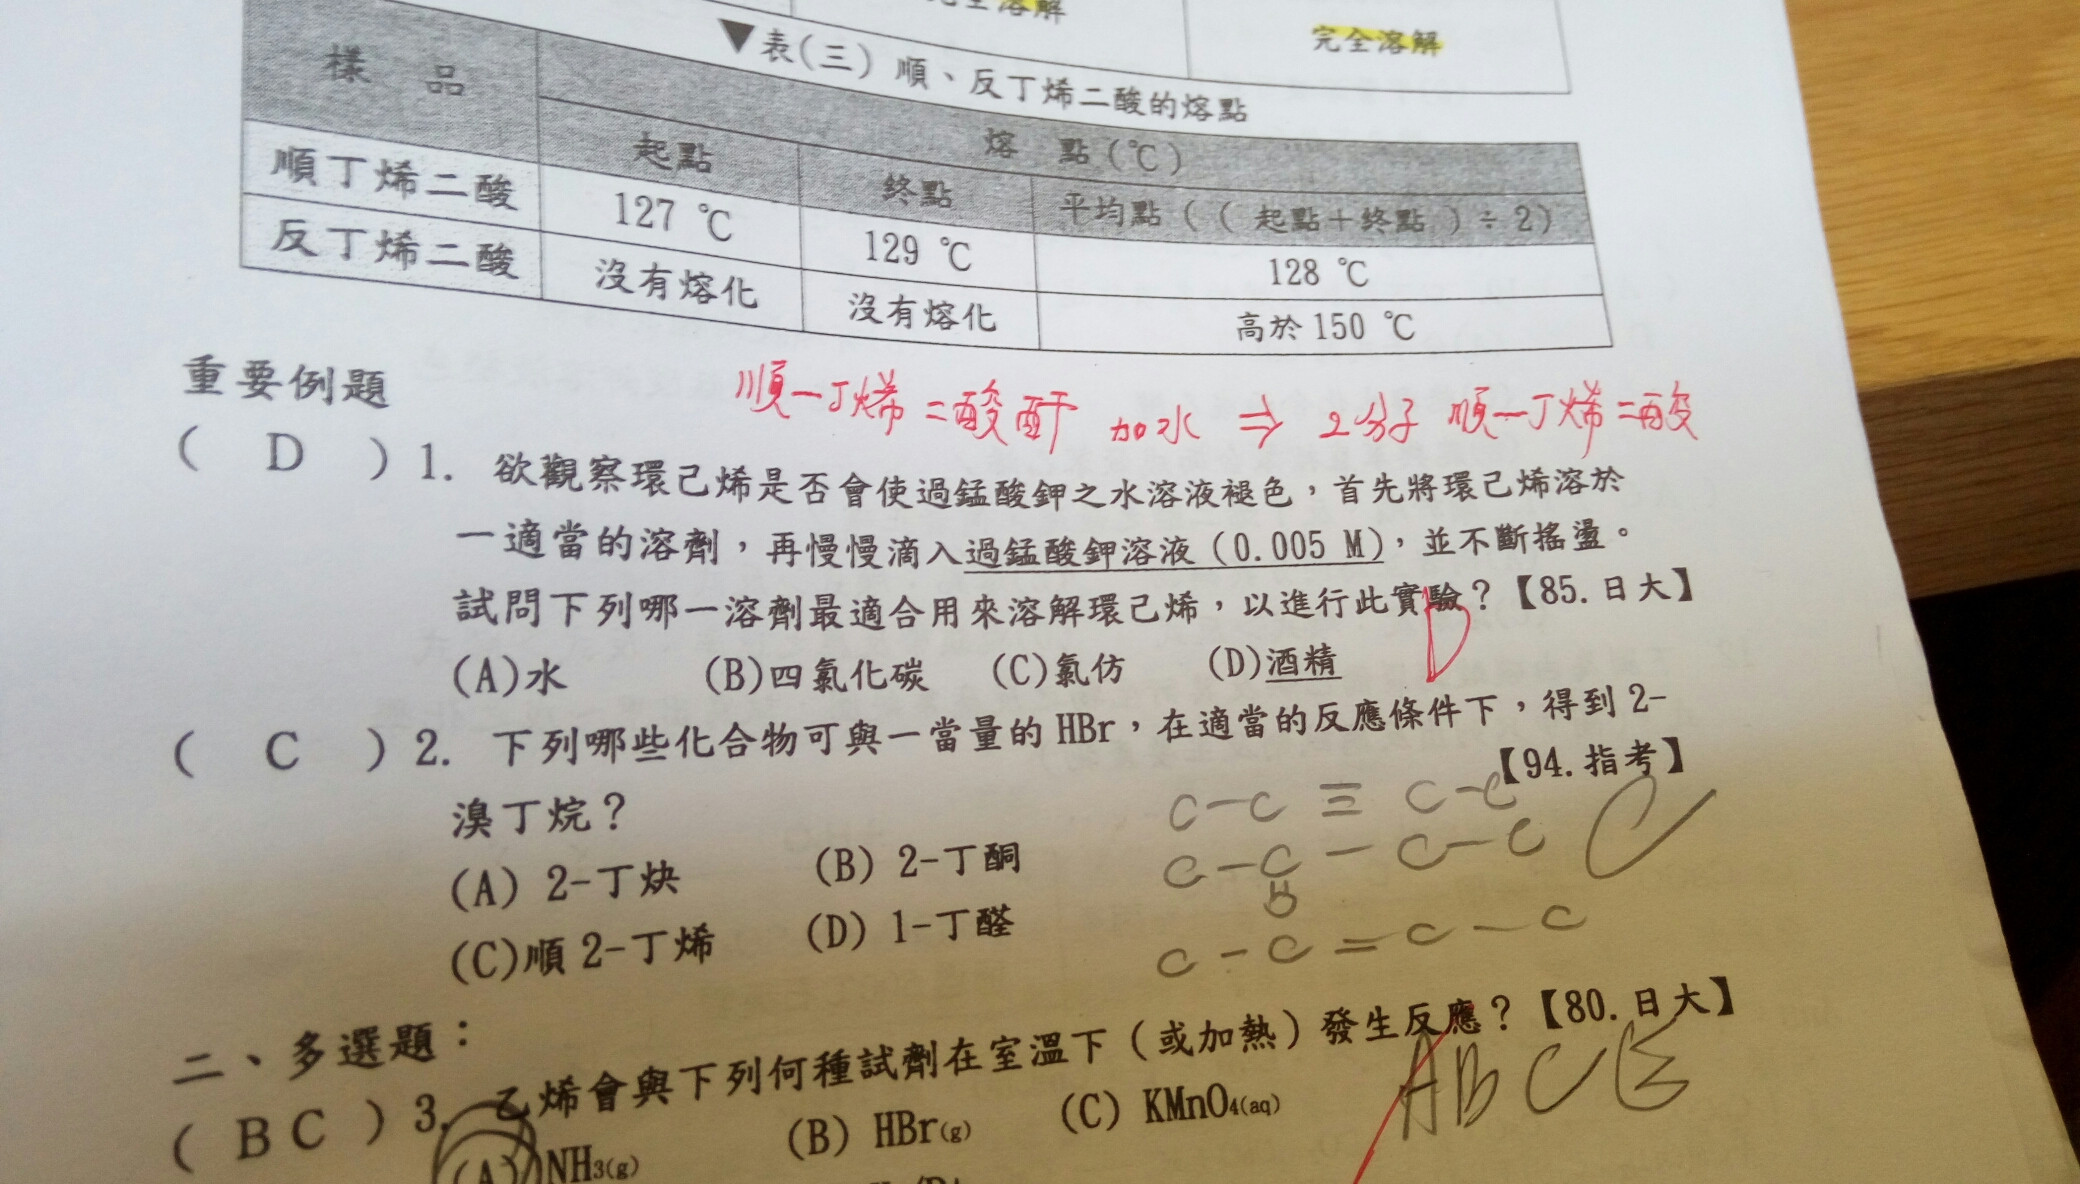 完全溶解
完全溶解
▼表(三) 順、反丁烯二酸的熔點
樣 品
熔 點(℃)
起點
終點
平均點 ( ( 起點+終點 ) ÷ 2)
順丁烯二酸
127 ℃
129 ℃
128 ℃
反丁烯二酸
沒有熔化
沒有熔化
高於 150 ℃
重要例題
順-丁烯二酸酐 加水 ⇒ 2分子 順-丁烯二酸
( D ) 1. 欲觀察環己烯是否會使過錳酸鉀之水溶液褪色，首先將環己烯溶於
一適當的溶劑，再慢慢滴入過錳酸鉀溶液 (0.005 M)，並不斷搖盪。
試問下列哪一溶劑最適合用來溶解環己烯，以進行此實驗？【85.日大】
D
(A)水 (B)四氯化碳 (C)氯仿 (D)酒精
( C ) 2. 下列哪些化合物可與一當量的 HBr，在適當的反應條件下，得到 2-
溴丁烷？
【94.指考】
C-C≡C-C
C
(A) 2-丁炔 (B) 2-丁酮
C-C-C-C
(C)順 2-丁烯 (D) 1-丁醛
C-C=C-C
二、多選題：
( BC ) 3. 乙烯會與下列何種試劑在室溫下 (或加熱) 發生反應？【80.日大】
ABCE
(A) NH3(g) (B) HBr(g) (C) KMnO4(aq)